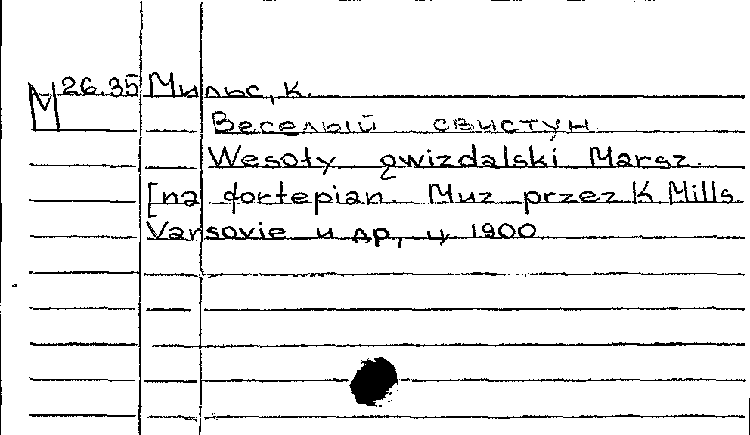 М 26.35 Мильс, К.
Веселый свистун
Wesoły gwizdalski Marsz.
[na fortepian. Muz przez K Mills.
Varsovie и др, ц 1900